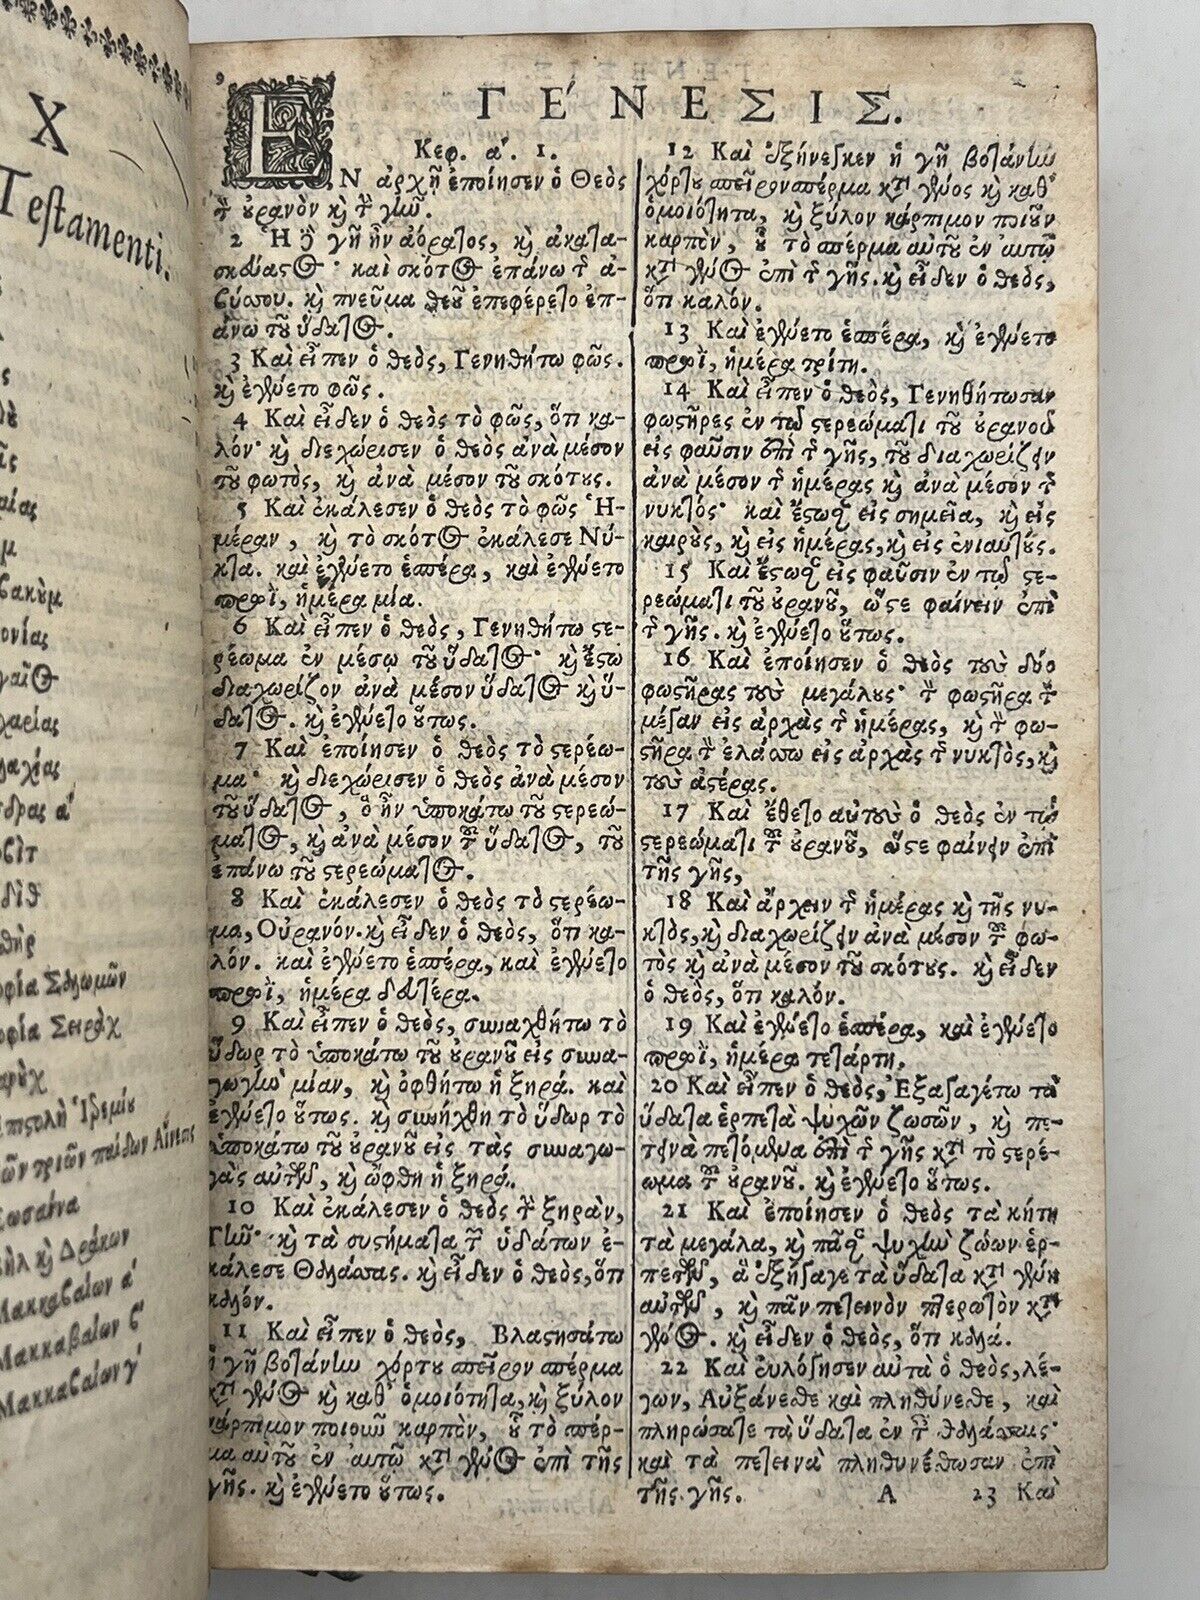 X
Testamenti.
ακὺμ
ονίας
γαῖΘ
χαρίας
αχίας
δρας α΄
Βὶτ
δὶθ
θὴρ
φία Σολωμῶν
φία Σειρὰχ
ρὺχ
πιςολὴ Ἱερεμίου
ῶν τριῶν παίδων Αἴνεσις
Σωσαίνα
ὴλ κỳ Δράκων
Μακκαβαίων α΄
Μακκαβαίων ϛ΄
Μακκαβαίων γ΄
ΓΕ΄ΝΕΣΙΣ.
Κεφ. α΄. 1.
ΕΝ ἀρχῇ ἐποίησεν ὁ Θεὸς
τ̀ ὐρανὸν κỳ τ̀ γῆν.
2 Ἡ δὲ γῆ ἦν ἀόρατος, κỳ ἀκατα-
σκεύαστος· καὶ σκότος ἐπάνω τ̃ ἀ-
βύσσου. κỳ πνεῦμα θεοῦ ἐπεφέρετο ἐπ-
άνω τοῦ ὕδατος.
3 Καὶ εἶπεν ὁ θεὸς, Γενηθήτω φῶς.
κỳ ἐγένετο φῶς.
4 Καὶ εἶδεν ὁ θεὸς τὸ φῶς, ὅτι κα-
λόν· κỳ διεχώρισεν ὁ θεὸς ἀνὰ μέσον
τοῦ φωτὸς, κỳ ἀνὰ μέσον τοῦ σκότους.
5 Καὶ ἐκάλεσεν ὁ θεὸς τὸ φῶς Ἡ-
μέραν, κỳ τὸ σκότος ἐκάλεσε Νύ-
κτα. καὶ ἐγένετο ἑσπέρα, καὶ ἐγένετο
πρωῒ, ἡμέρα μία.
6 Καὶ εἶπεν ὁ θεὸς, Γενηθήτω ςε-
ρέωμα ἐν μέσῳ τοῦ ὕδατος· κỳ ἔςω
διαχωρίζον ἀνὰ μέσον ὕδατος κỳ ὕ-
δατος. κỳ ἐγένετο ὕτως.
7 Καὶ ἐποίησεν ὁ θεὸς τὸ ςερέω-
μα· κỳ διεχώρισεν ὁ θεὸς ἀνὰ μέσον
τοῦ ὕδατος, ὃ ἦν ὑποκάτω τοῦ ςερεώ-
ματος, κỳ ἀνὰ μέσον τοῦ ὕδατος, τοῦ
ἐπάνω τοῦ ςερεώματος.
8 Καὶ ἐκάλεσεν ὁ θεὸς τὸ ςερέω-
μα, Οὐρανόν. κỳ εἶδεν ὁ θεὸς, ὅτι κα-
λόν. καὶ ἐγένετο ἑσπέρα, καὶ ἐγένετο
πρωῒ, ἡμέρα δευτέρα.
9 Καὶ εἶπεν ὁ θεὸς, συναχθήτω τὸ
ὕδωρ τὸ ὑποκάτω τοῦ ὐρανοῦ εἰς συνα-
γωγὴν μίαν, κỳ ὀφθήτω ἡ ξηρά. καὶ
ἐγένετο ὕτως. κỳ συνήχθη τὸ ὕδωρ τὸ
ὑποκάτω τοῦ ὐρανοῦ εἰς τὰς συναγω-
γὰς αὐτῶν, κỳ ὤφθη ἡ ξηρά.
10 Καὶ ἐκάλεσεν ὁ θεὸς τ̀ ξηρὰν,
Γῆν· κỳ τὰ συςήματα τῶν ὑδάτων ἐ-
κάλεσε Θαλάσσας. κỳ εἶδεν ὁ θεὸς, ὅτι
καλόν.
11 Καὶ εἶπεν ὁ θεὸς, Βλαςησάτω
ἡ γῆ βοτάνην χόρτου σπεῖρον σπέρμα
κατὰ γένος κỳ καθ᾽ ὁμοιότητα, κỳ ξύλον
κάρπιμον ποιοῦν καρπὸν, ὗ τὸ σπέρ-
μα αὐτοῦ ἐν αὐτῷ κατὰ γένος ἐπὶ τῆς
γῆς. κỳ ἐγένετο ὕτως.
12 Καὶ ἐξήνεγκεν ἡ γῆ βοτάνην
χόρτου σπεῖρον σπέρμα κατὰ γένος κỳ καθ᾽
ὁμοιότητα, κỳ ξύλον κάρπιμον ποιοῦν
καρπὸν, ὗ τὸ σπέρμα αὐτοῦ ἐν αὐτῷ
κατὰ γένος ἐπὶ τ̃ γῆς. κỳ εἶδεν ὁ θεὸς,
ὅτι καλόν.
13 Καὶ ἐγένετο ἑσπέρα, κỳ ἐγένετο
πρωῒ, ἡμέρα τρίτη.
14 Καὶ εἶπεν ὁ θεὸς, Γενηθήτωσαν
φωςῆρες ἐν τῷ ςερεώματι τοῦ ὐρανοῦ
εἰς φαῦσιν ἐπὶ τ̃ γῆς, τοῦ διαχωρίζειν
ἀνὰ μέσον τ̃ ἡμέρας κỳ ἀνὰ μέσον τ̃
νυκτός· καὶ ἔςωσαν εἰς σημεῖα, κỳ εἰς
καιρὺς, κỳ εἰς ἡμέρας, κỳ εἰς ἐνιαυτύς.
15 Καὶ ἔςωσαν εἰς φαῦσιν ἐν τῷ ςε-
ρεώματι τοῦ ὐρανοῦ, ὥςε φαίνειν ἐπὶ
τ̃ γῆς. κỳ ἐγένετο ὕτως.
16 Καὶ ἐποίησεν ὁ θεὸς τοὺς δύο
φωςῆρας τοὺς μεγάλυς· τ̀ φωςῆρα τ̀
μέγαν εἰς ἀρχὰς τ̃ ἡμέρας, κỳ τ̀ φω-
ςῆρα τ̀ ἐλάσσω εἰς ἀρχὰς τ̃ νυκτὸς, κỳ
τοὺς ἀςέρας.
17 Καὶ ἔθετο αὐτοὺς ὁ θεὸς ἐν τῷ
ςερεώματι τοῦ ὐρανοῦ, ὥςε φαίνειν ἐπὶ
τῆς γῆς,
18 Καὶ ἄρχειν τ̃ ἡμέρας κỳ τῆς νυ-
κτὸς, κỳ διαχωρίζειν ἀνὰ μέσον τοῦ φω-
τὸς κỳ ἀνὰ μέσον τοῦ σκότους. κỳ εἶδεν
ὁ θεὸς, ὅτι καλόν.
19 Καὶ ἐγένετο ἑσπέρα, καὶ ἐγένετο
πρωῒ, ἡμέρα τετάρτη.
20 Καὶ εἶπεν ὁ θεὸς, Ἐξαγαγέτω τὰ
ὕδατα ἑρπετὰ ψυχῶν ζωσῶν, κỳ πε-
τεινὰ πετόμενα ἐπὶ τ̃ γῆς κατὰ τὸ ςερέ-
ωμα τοῦ ὐρανοῦ. κỳ ἐγένετο ὕτως.
21 Καὶ ἐποίησεν ὁ θεὸς τὰ κήτη
τὰ μεγάλα, κỳ πᾶσαν ψυχὴν ζώων ἑρ-
πετῶν, ἃ ἐξήγαγε τὰ ὕδατα κατὰ γένη
αὐτῶν, κỳ πᾶν πετεινὸν πτερωτὸν κατὰ
γένος. κỳ εἶδεν ὁ θεὸς, ὅτι καλά.
22 Καὶ εὐλόγησεν αὐτὰ ὁ θεὸς, λέ-
γων, Αὐξάνεσθε καὶ πληθύνεσθε, καὶ
πληρώσατε τὰ ὕδατα ἐν τ̃ θαλάσσαις·
καὶ τὰ πετεινὰ πληθυνέσθωσαν ἐπὶ
τῆς γῆς.
A 23 Καὶ